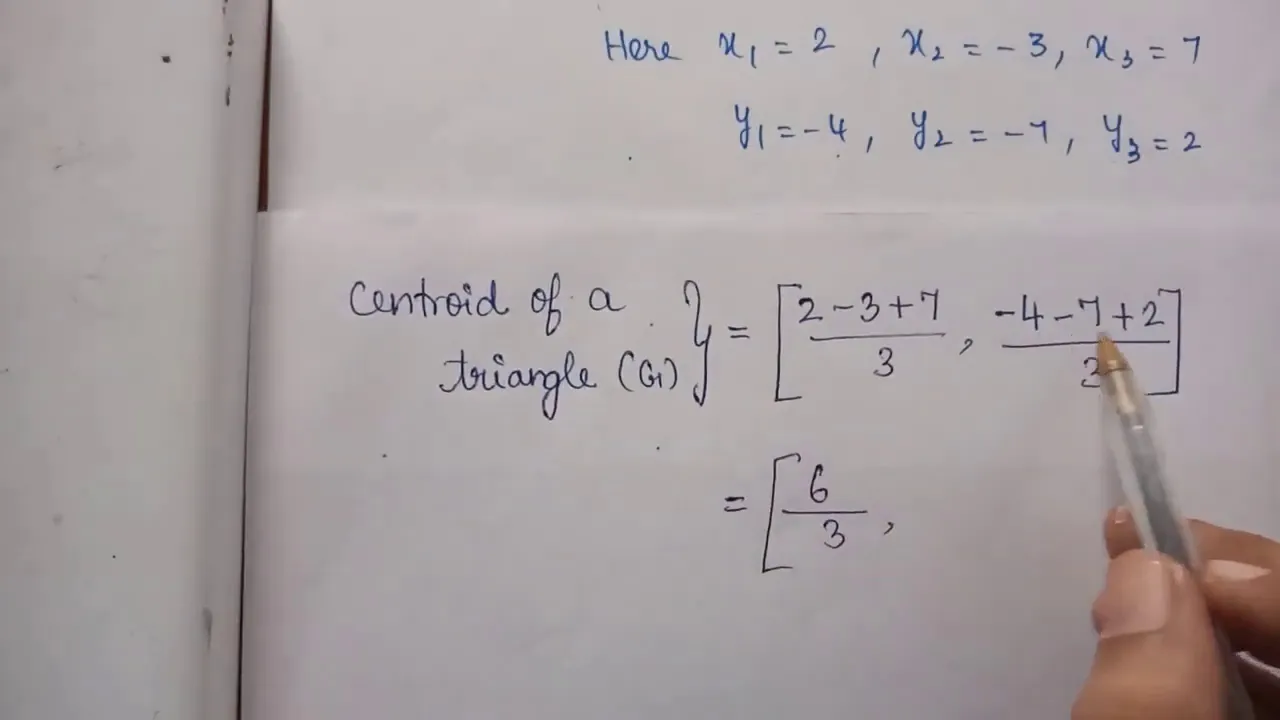 Here x₁ = 2 , x₂ = -3, x₃ = 7
y₁ = -4 , y₂ = -7 , y₃ = 2
Centroid of a
triangle (G) } = [ 2-3+7 / 3 , -4-7+2 / 3 ]
= [ 6 / 3 ,